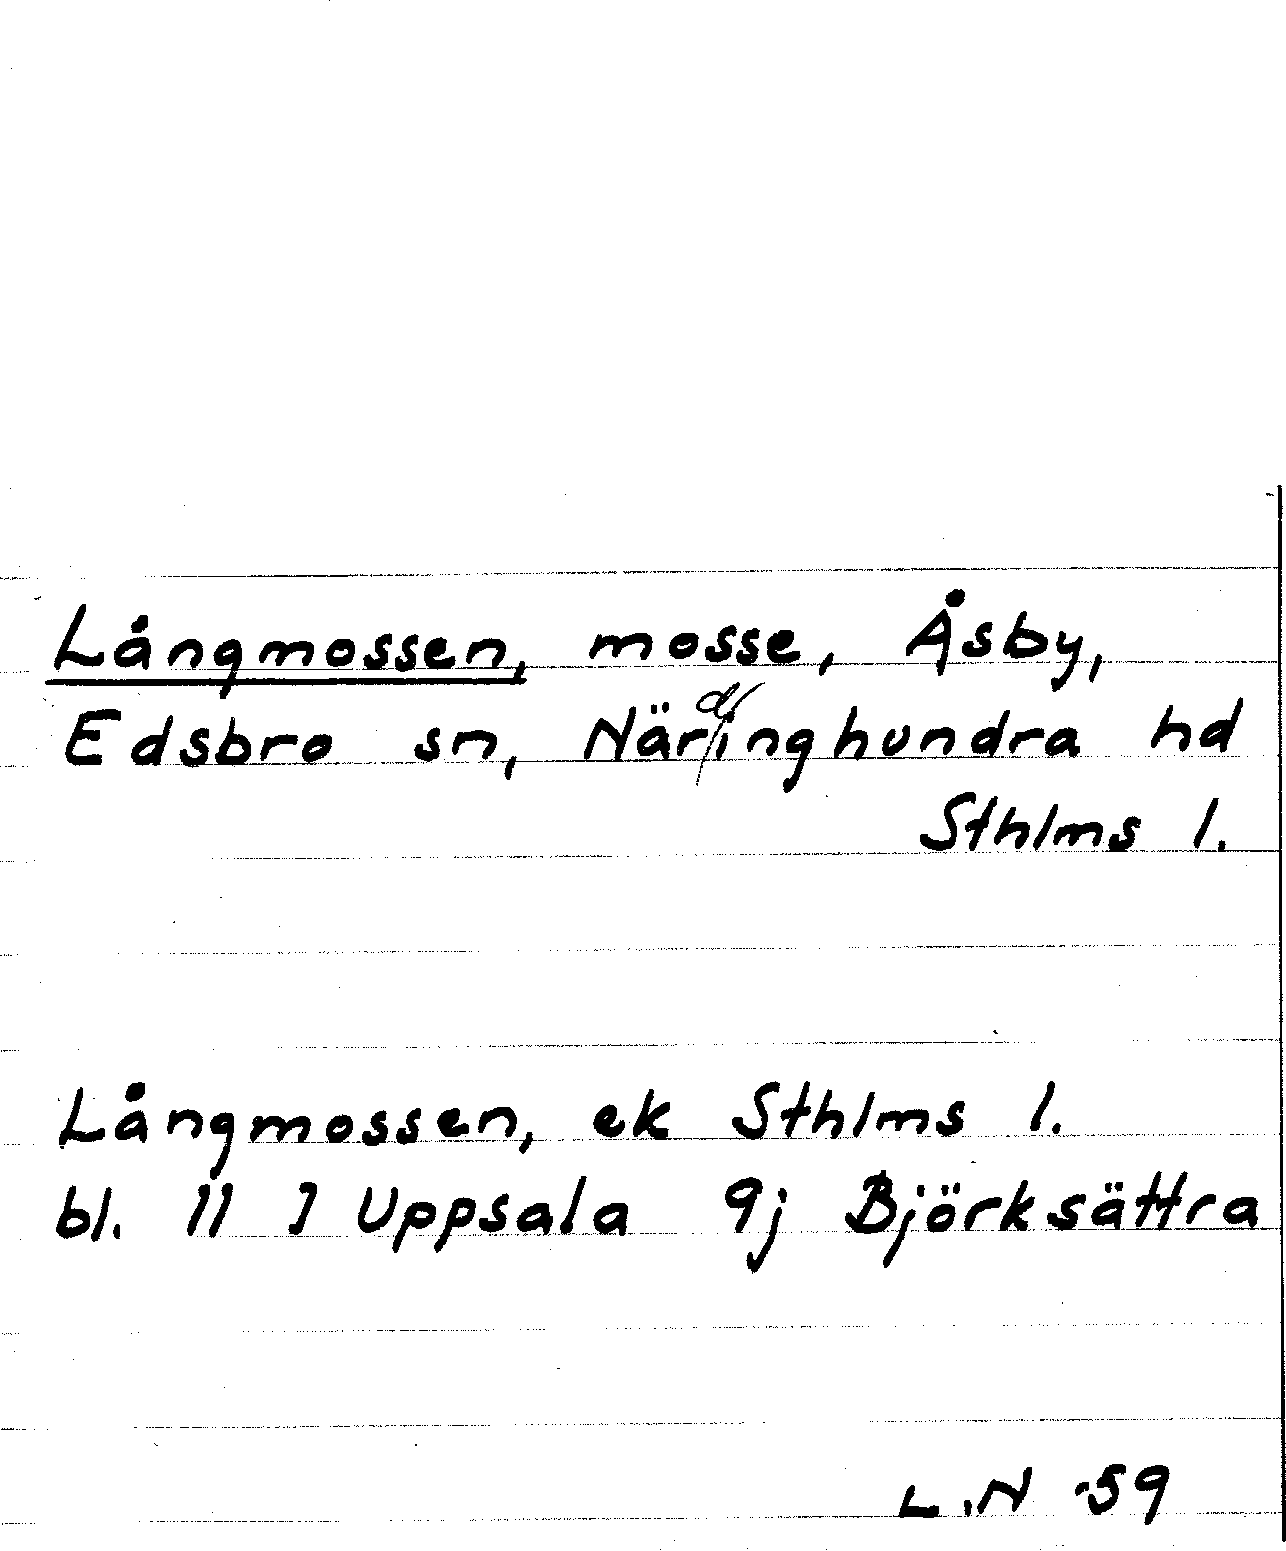 Långmossen, mosse, Åsby,
Edsbro sn, Närdinghundra hd
Sthlms l.
Långmossen, ek Sthlms l.
bl. 11 I Uppsala 9j Björksättra
L.N -59